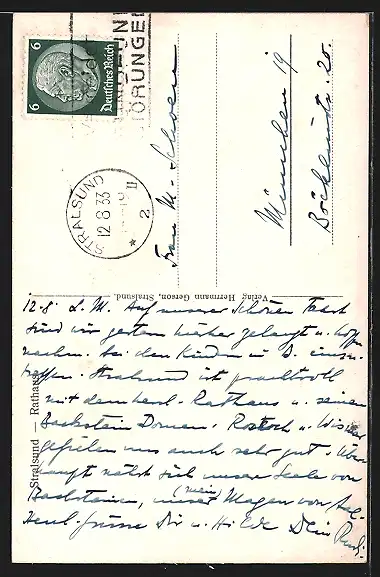 6 6
Deutsches Reich
STÖRUNGEN
STRALSUND
12 8 33
2
Frau M.
München 19
Böcklinstr. 20.
Verlag Herrmann Gerson, Stralsund.
Stralsund — Rathaus
12.8. L. M. Auf unserer schönen Fahrt
sind wir gestern hierher gelangt u.
bei den Kindern in B.
treffen. Stralsund ist prachtvoll
mit dem herrl. Rathaus u. seinen
Backstein Domen. Rostock u. Wismar
gefielen uns auch sehr gut. Über
haupt nährt sich unsere Seele von
Backsteinen, unser (mein) Magen von Aal.
Herzl. Grüsse Dir u. Hilde Dein Rudi.